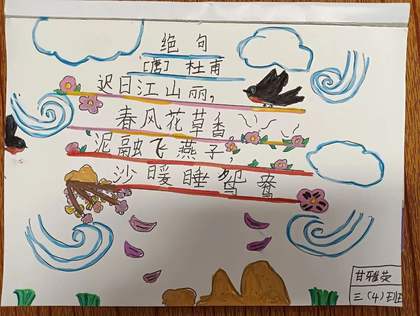 绝句
[唐] 杜甫
迟日江山丽,
春风花草香,
泥融飞燕子,
沙暖睡鸳鸯
甘雅荧
三(4)班